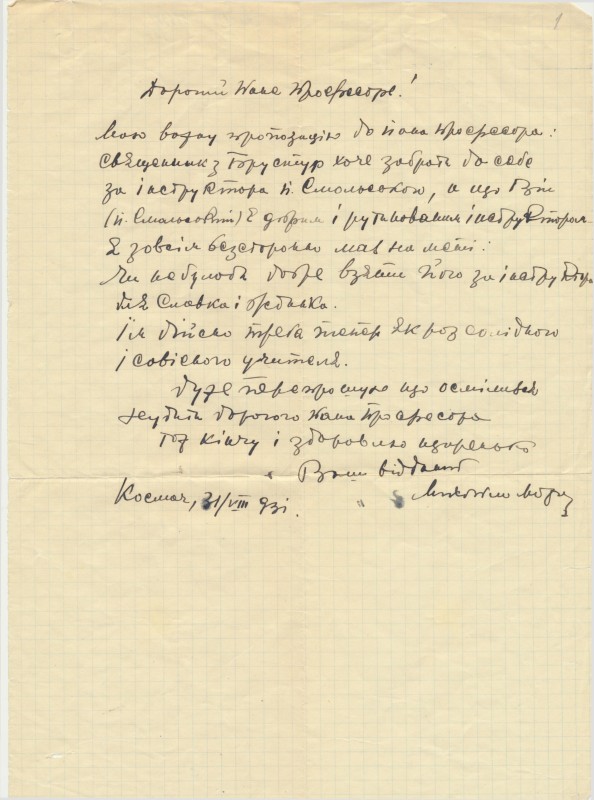 1
Дорогий Пане Професоре!
Маю вагу пропозицію до Пана Професора:
Священник з Брустур хоче забрати до себе
за інструктора п. Смольського, а що Він
(п. Смольський) є добрим і рутинованим інструктором
Я зовсім безсторонно мав на меті:
Чи не булоби добре взяти Його за інструктора
для Славка і
Їм дійсно треба тепер якраз солідного
і совісного учителя.
Дуже перепрошую що осмілився
трудити дорогого Пана Професора
Тож кінчу і здоровлю щиренько
Ваш відданий
Космач, 31/VIII 931.